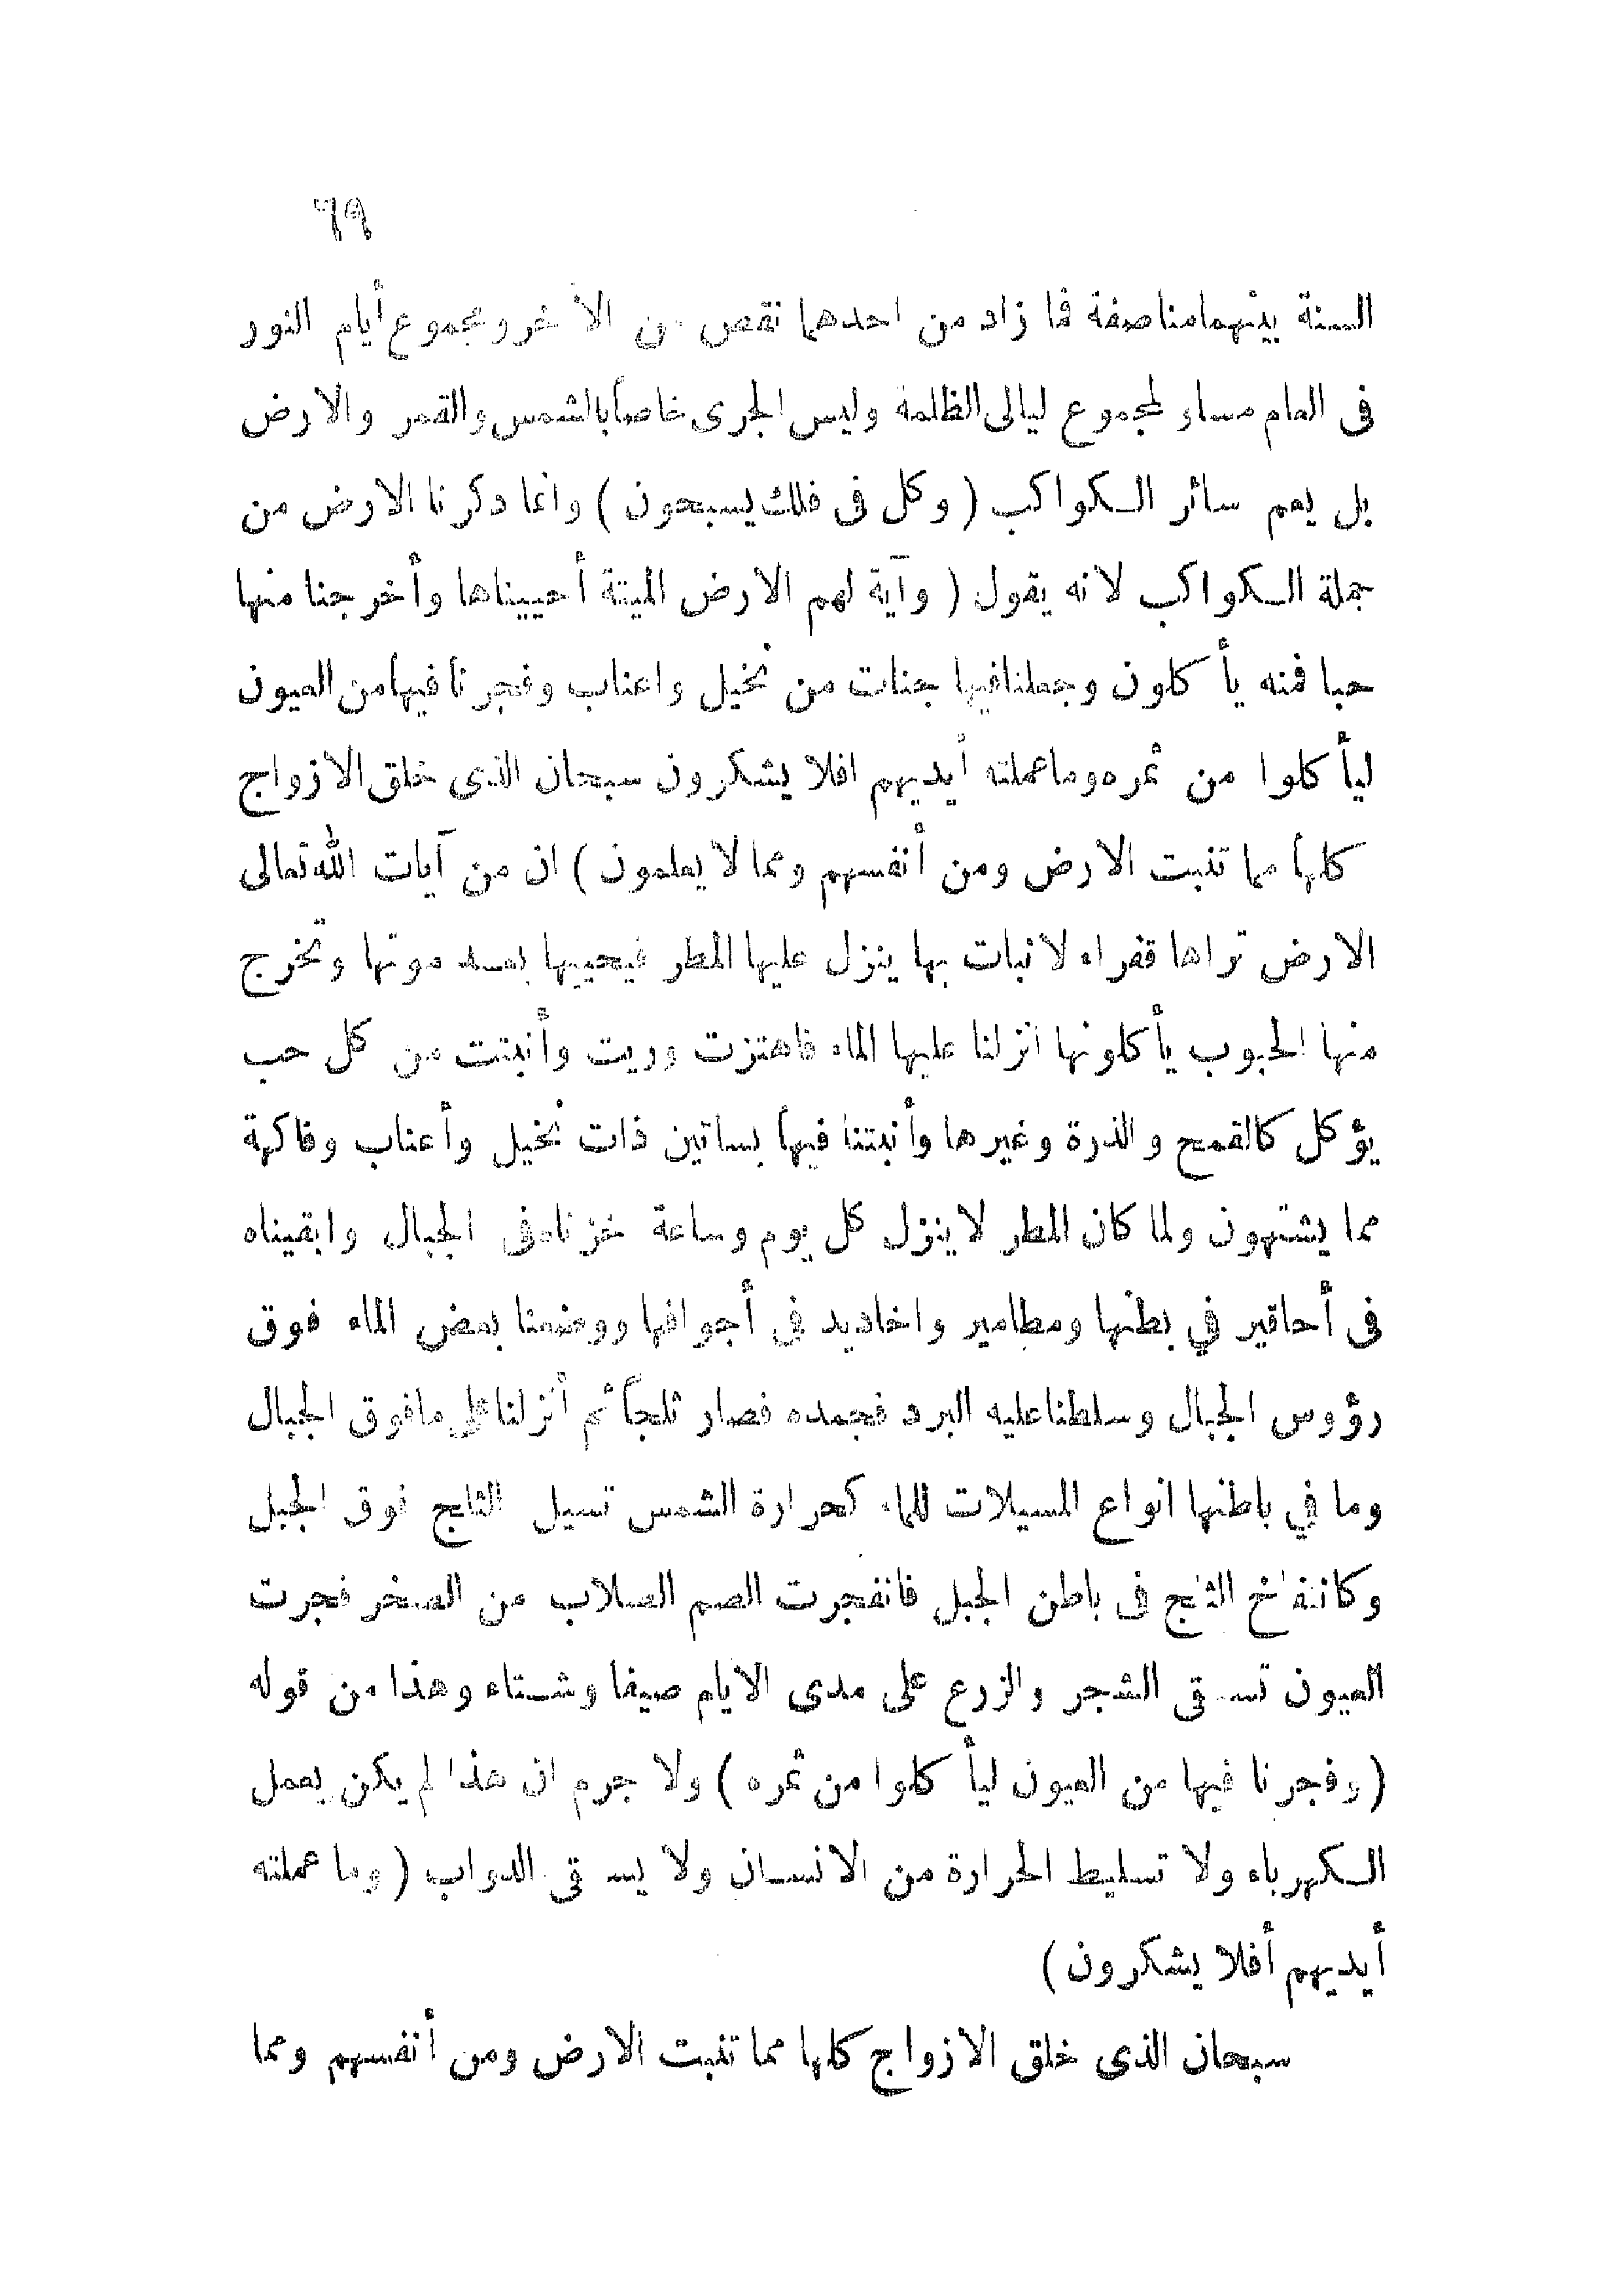 ٦٩
السنة بينهما مناصفة فما زاد من احدهما نقص من الآخر ومجموع أيام النور
فى العام مساو لمجموع ليالى الظلمة وليس الجرى خاصاً بالشمس والقمر والارض
بل يعم سائر الكواكب (وكل فى فلك يسبحون) وانما ذكرنا الارض من
جملة الكواكب لانه يقول (وآية لهم الارض الميتة أحييناها وأخرجنا منها
حبا فمنه يأكلون وجعلنا فيها جنات من نخيل واعناب وفجرنا فيها من العيون
ليأكلوا من ثمره وما عملته أيديهم افلا يشكرون سبحان الذى خلق الازواج
كلها مما تنبت الارض ومن أنفسهم ومما لا يعلمون) ان من آيات الله تعالى
الارض تراها قفراء لا نبات بها ينزل عليها المطر فيحييها بعد موتها وتخرج
منها الحبوب يأكلونها انزلنا عليها الماء فاهتزت وربت وأنبتت من كل حب
يؤكل كالقمح والذرة وغيرها وأنبتنا فيها بساتين ذات نخيل وأعناب وفاكهة
مما يشتهون ولما كان المطر لا ينزل كل يوم وساعة خزناه فى الجبال وابقيناه
فى أحاقير في بطنها ومطامير واخاديد فى أجوافها ووضعنا بعض الماء فوق
رؤوس الجبال وسلطنا عليه البرد فجمده فصار ثلجاً ثم أنزلنا على ما فوق الجبال
وما في باطنها انواع المسيلات للماء كحرارة الشمس تسيل الثلج فوق الجبل
وكانتفاخ الثلج فى باطن الجبل فانفجرت الصم الصلاب من الصخر فجرت
العيون تسقى الشجر والزرع على مدى الايام صيفا وشتاء وهذا من قوله
(وفجرنا فيها من العيون ليأكلوا من ثمره) ولا جرم ان هذا لم يكن بعمل
الكهرباء ولا تسليط الحرارة من الانسان ولا يسقى الدواب (وما عملته
أيديهم أفلا يشكرون)
سبحان الذى خلق الازواج كلها مما تنبت الارض ومن أنفسهم ومما